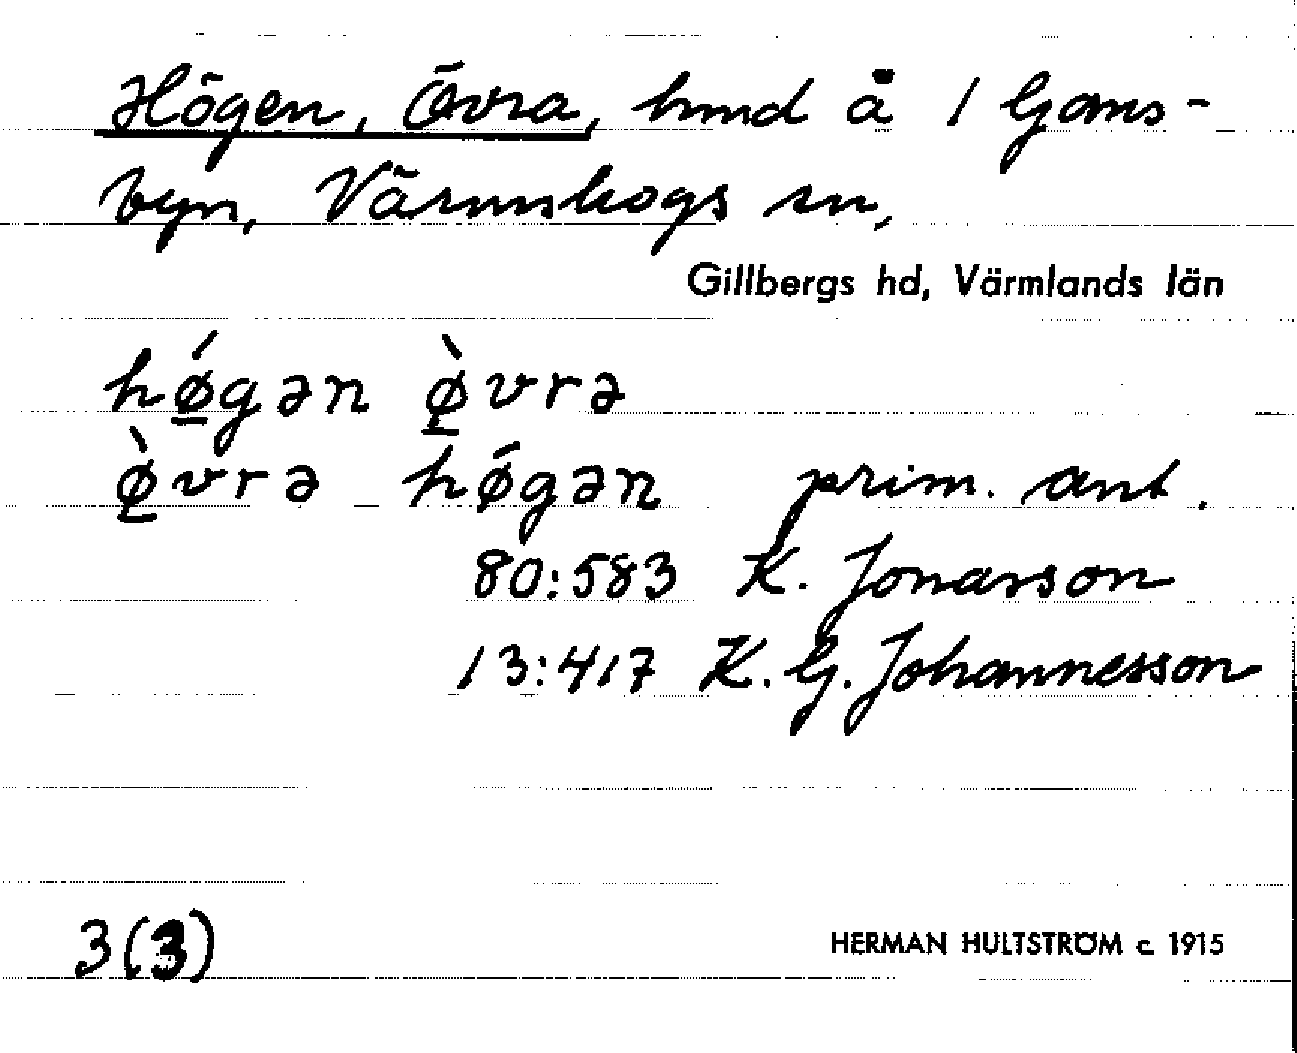 Högen, Övra, hmd å 1 Gams-
byn, Värmskogs sn,
Gillbergs hd, Värmlands län
hǿ̱gən ø̱̀vrə
ø̱̀vrə hǿgən prim. ant.
80:583 K. Jonasson
13:417 K. G. Johannesson
3(3)
HERMAN HULTSTRÖM c. 1915